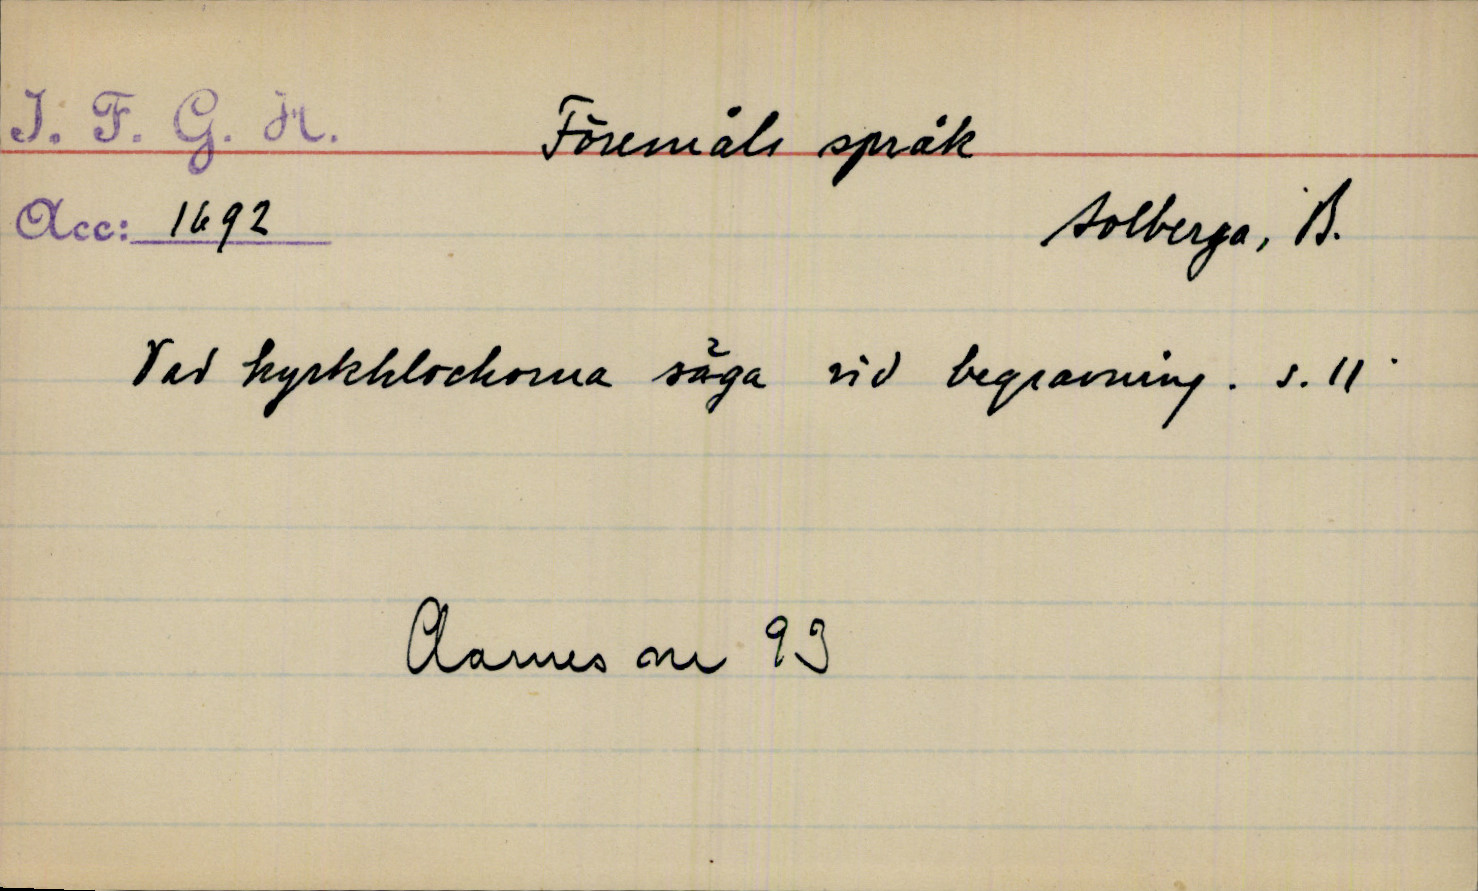 I. F. G. H.
Föremåls språk
Acc: 1692
Solberga, B.
Vad kyrkklockorna säga vid begravning. s. 11
Aarnes nr 93